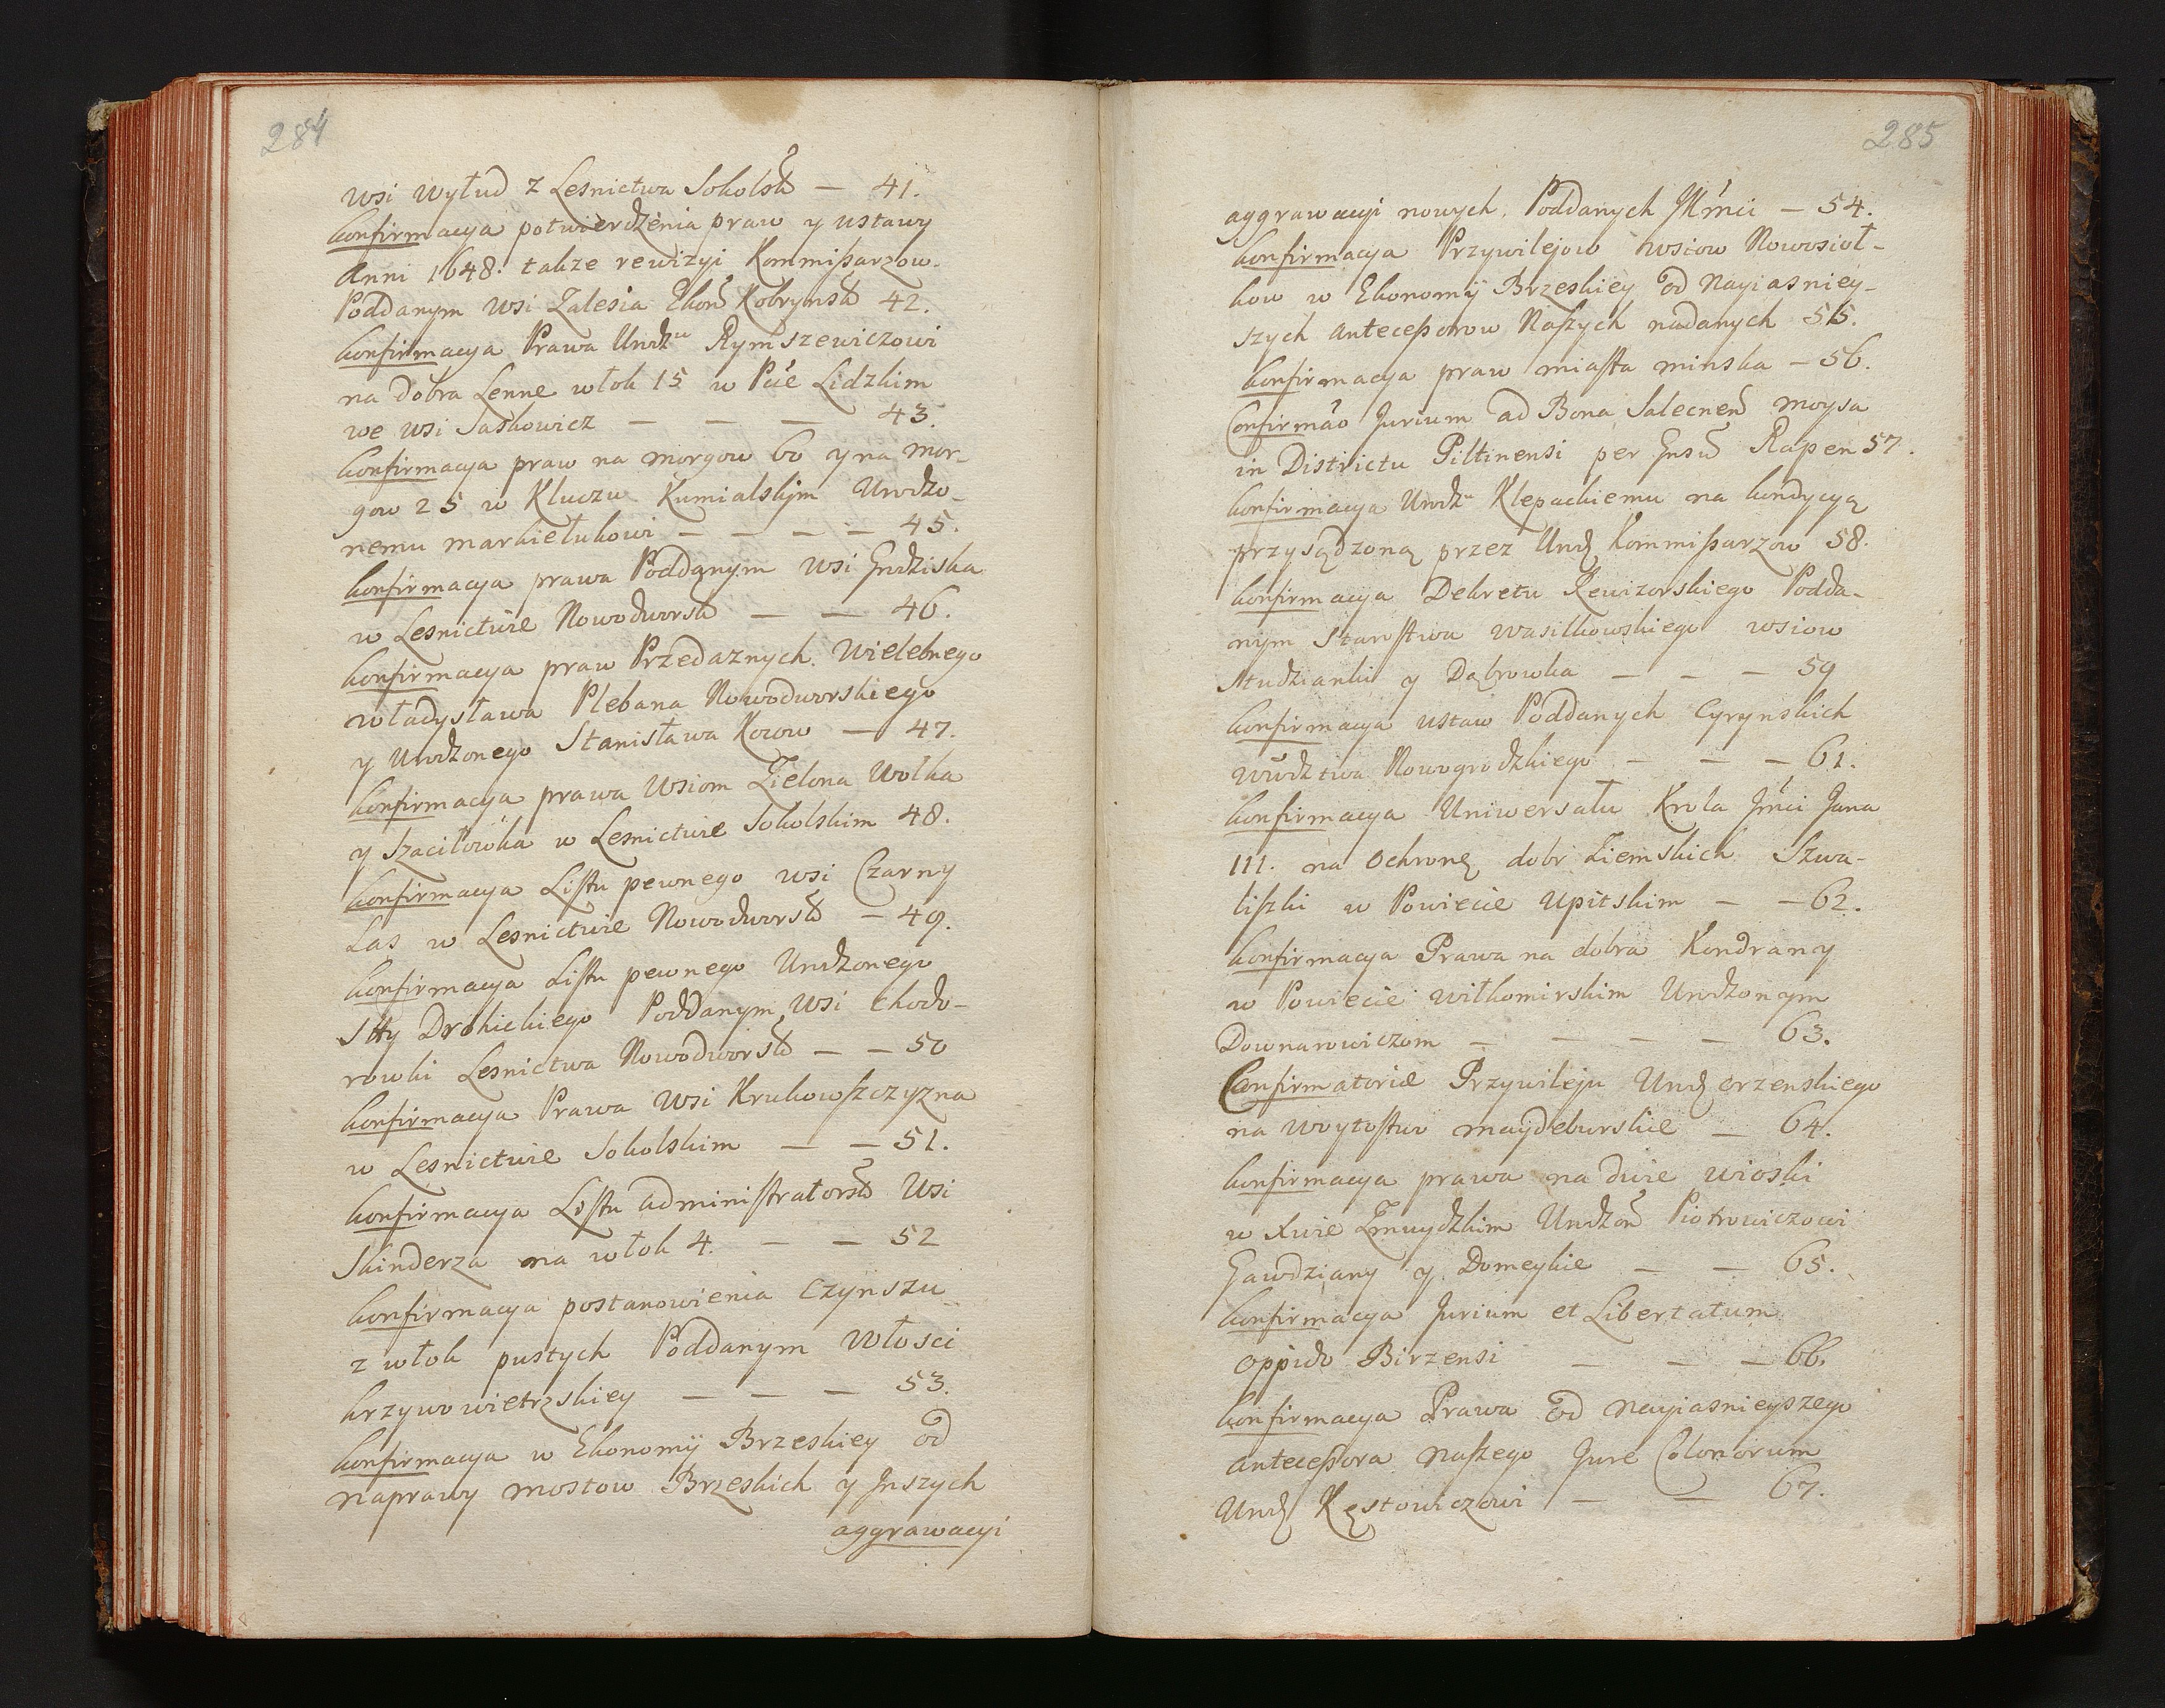 284
wsi wyłud z Lesnictwa Sokolsk — 41.
konfirmacya potwierdzenia praw y ustawy
Anni 1648. takze rewizyi Kommißarzow.
Poddanym wsi Zalesia Ekon Kobrynsk 42.
konfirmacya Prawa Urodzu Rymszewiczowi
na dobra Lenne włok 15 w Pcie Lidzkim
we wsi Saskowicz — — — 43.
konfirmacya praw na morgow 60 y na mor-
gow 25 w Kluczu Kumialskim Urodzo-
nemu markiełukowi — — — — 45.
konfirmacya prawa Poddanym wsi Grodziska
w Lesnictwie Nowodworsk — — 46.
konfirmacya praw Przedaznych Wielebnego
władysława Plebana Nowodworskiego
y Urodzonego Stanisława Kozow — 47.
konfirmacya prawa wsiom Zielona Wolka
y Szaciłowka w Lesnictwie Sokolskim 48.
konfirmacya Listu pewnego wsi Czarny
Las w Lesnictwie Nowodworsk — 49.
konfirmacya Listu pewnego Urodzonego
Itty Drohickiego Poddanym wsi Chodo-
rowki Lesnictwa Nowodworsk — — 50
konfirmacya Prawa wsi Krukowszczyzna
w Lesnictwie Sokolskim — — 51.
konfirmacya Listu administratorsk wsi
Skinderza na włok 4. — — 52
konfirmacya postanowienia Czynszu
z włok pustych Poddanym włosci
krzywowietrzskiey — — — 53.
konfirmacya w Ekonomij Brzeskiey od
naprawy mostow Brzeskich y Jnszych
aggrawacyi
285
aggrawacyi nowych Poddanych JKmci — 54.
konfirmacya Przywilejow wsiow Nowosioł-
kow w Ekonomij Brzeskiey od Nayiasniey-
szych anteceßorow Naszych nadanych 55.
konfirmacya praw miasta minska — 56.
Confirmao Jurium ad Bona Salecnen moysa
in Districtu Piltinensi per Gnsu Rapen 57.
konfirmacya Urodzu Klepackiemu na kondycyą
przysądzoną przez Urodz Kommißarzow 58.
konfirmacya Dekretu Rewizorskiego Podda-
nym Starostwa wasilkowskiego wsiow
Studzianki y Dąbrowka — — — 59
konfirmacya ustaw Poddanych Cyrynskich
wwdztwa Nowogrodzkiego — — — 61.
konfirmacya Uniwersału Krola Jmci Jana
III. na Ochronę dobr Ziemskich Szwa-
liszki w Powiecie Upitskim — — 62.
konfirmacya Prawa na dobra Kondrany
w Powiecie wiłkomirskim Urodzonym
Downarowiczom — — — — 63.
Confirmatoriae Przywileju Urodz orzenskiego
na woytostwo maydeburskie — 64.
konfirmacya prawa na dwie wioski
w Xwie Zmuydzkim Urodzon Piotrowiczowi
Gawdziany y Domeykie — — 65.
konfirmacya Jurium et Libertatum
oppido Birzensi — — — 66.
konfirmacya Prawa od nayiasnieyszego
anteceßora naszego Jure Colonorum
Urodz Kęstowiczowi — — 67.